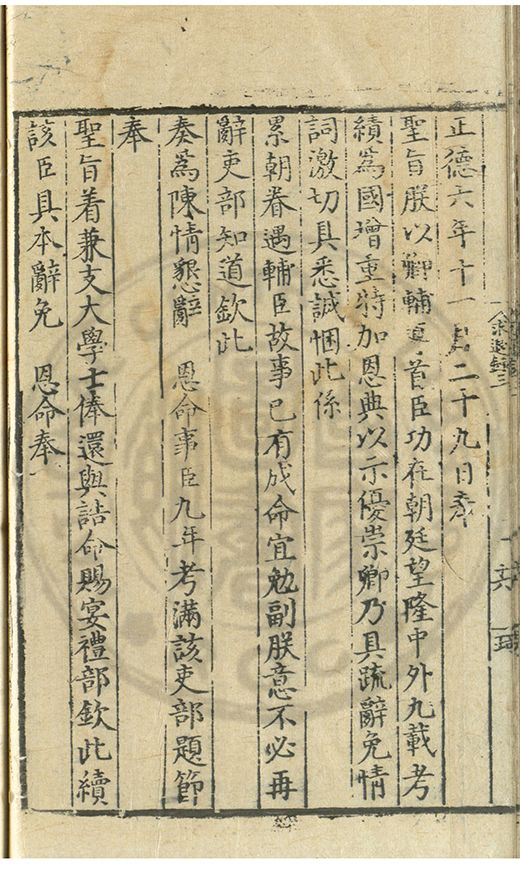 正德六年十一月二十九日奉
聖旨朕以卿輔導首臣功在朝廷望隆中外九載考
績為國增重特加恩典以示優崇卿乃具疏辭免情
詞激切具悉誠悃此係
累朝眷遇輔臣故事已有成命宜勉副朕意不必再
辭吏部知道欽此
奏為陳情懇辭 恩命事臣九年考滿該吏部題節
奉
聖旨着兼支大學士俸還與誥命賜宴禮部欽此續
該臣具本辭免 恩命奉